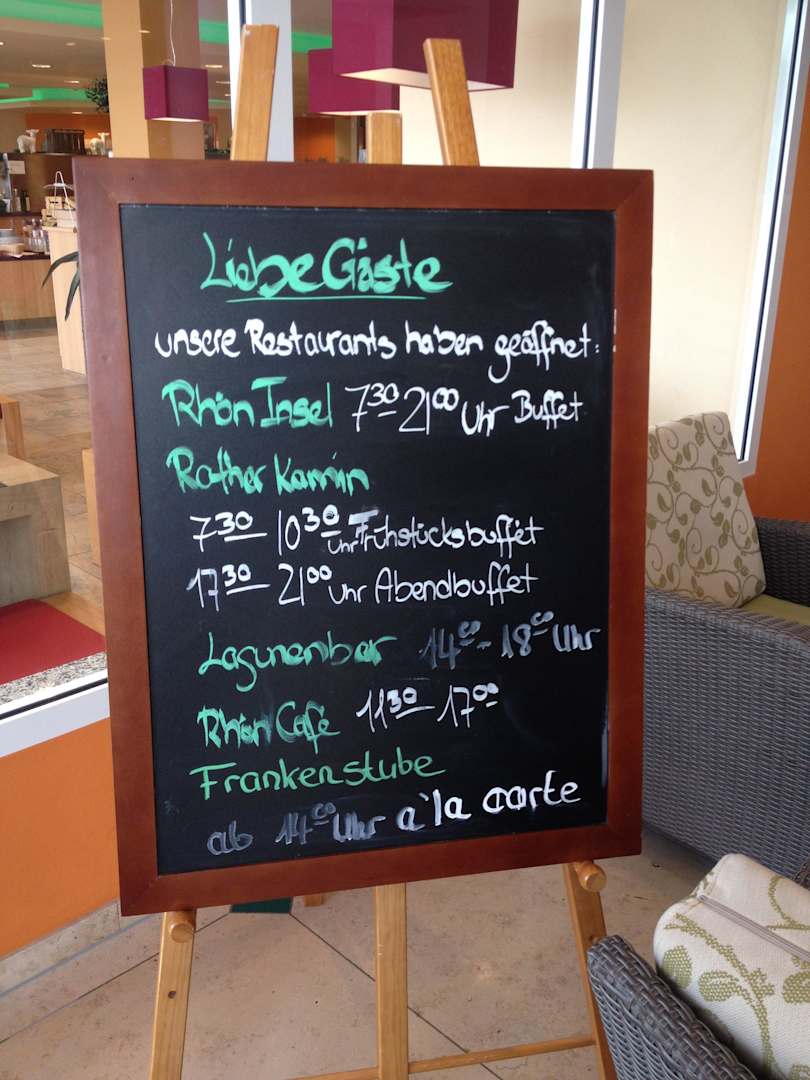 Liebe Gäste
unsere Restaurants haben geöffnet:
Rhön Insel 7³⁰-21⁰⁰ Uhr Buffet
Rother Kamin
7³⁰- 10³⁰ Uhr Frühstücksbuffet
17³⁰- 21⁰⁰ Uhr Abendbuffet
Lagunenbar 14⁰⁰- 18⁰⁰ Uhr
Rhön Café 11³⁰- 17⁰⁰
Frankenstube
ab 14⁰⁰ Uhr a`la carte